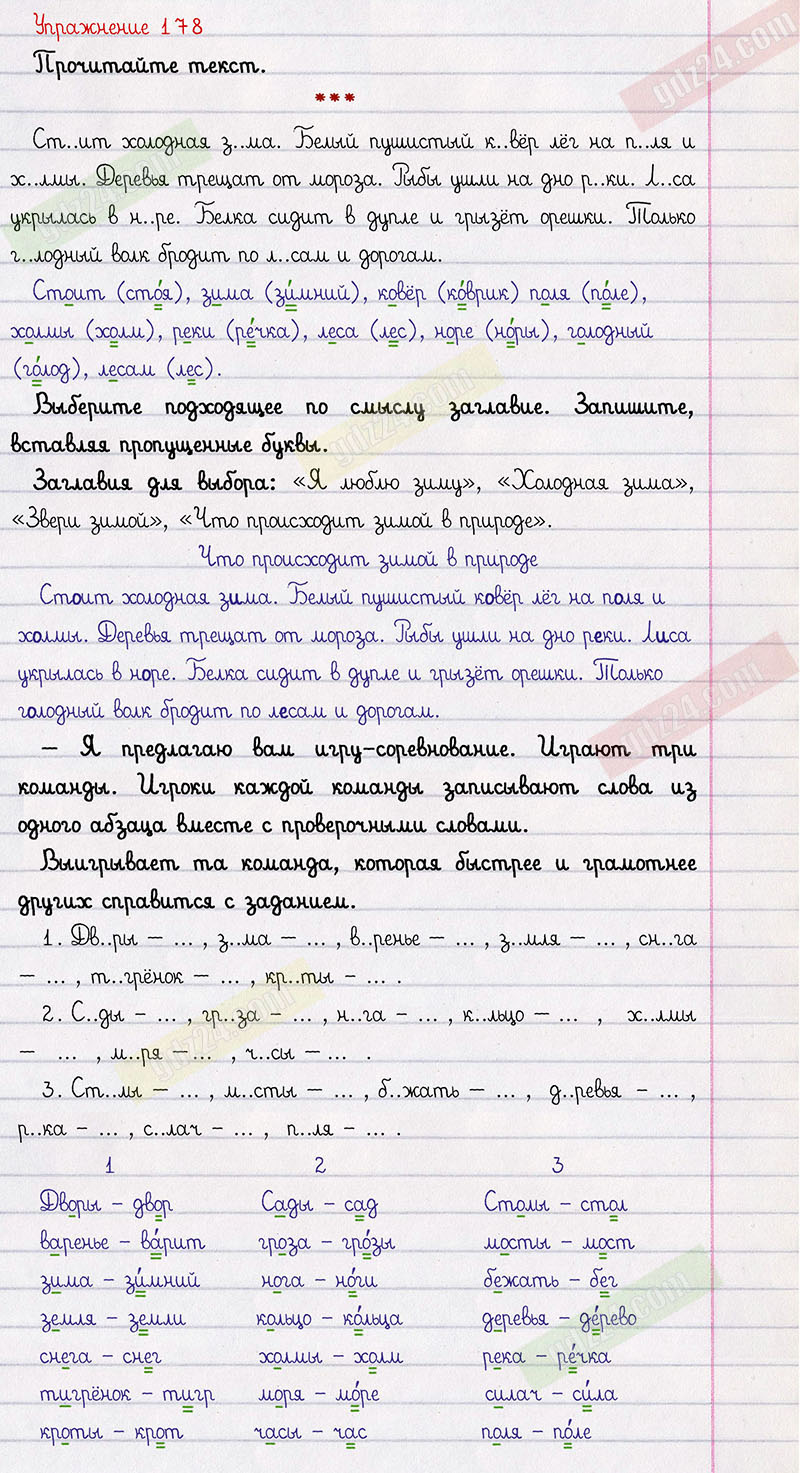 Упражнение 178
Прочитайте текст.
***
Ст..ит холодная з..ма. Белый пушистый к..вёр лёг на п..ля и
х..лмы. Деревья трещат от мороза. Рыбы ушли на дно р..ки. Л..са
укрылась в н..ре. Белка сидит в дупле и грызёт орешки. Только
г..лодный волк бродит по л..сам и дорогам.
Стоит (сто́я), зима (зи́мний), ковёр (ко́врик) поля (по́ле),
холмы (холм), реки (ре́чка), леса (лес), норе (но́ры), голодный
(го́лод), лесам (лес).
Выберите подходящее по смыслу заглавие. Запишите,
вставляя пропущенные буквы.
Заглавия для выбора: «Я люблю зиму», «Холодная зима»,
«Звери зимой», «Что происходит зимой в природе».
Что происходит зимой в природе
Стоит холодная зима. Белый пушистый ковёр лёг на поля и
холмы. Деревья трещат от мороза. Рыбы ушли на дно реки. Лиса
укрылась в норе. Белка сидит в дупле и грызёт орешки. Только
голодный волк бродит по лесам и дорогам.
– Я предлагаю вам игру-соревнование. Играют три
команды. Игроки каждой команды записывают слова из
одного абзаца вместе с проверочными словами.
Выигрывает та команда, которая быстрее и грамотнее
других справится с заданием.
1. Дв..ры – ... , з..ма – ... , в..ренье – ... , з..мля – ... , сн..га
– ... , т..грёнок – ... , кр..ты – ... .
2. С..ды – ... , гр..за – ... , н..га – ... , к..льцо – ... , х..лмы
– ... , м..ря – ... , ч..сы – ... .
3. Ст..лы – ... , м..сты – ... , б..жать – ... , д..ревья – ... ,
р..ка – ... , с..лач – ... , п..ля – ... .
1 2 3
Дворы – двор Сады – сад Столы – стол
варенье – ва́рит гроза – гро́зы мосты – мост
зима – зи́мний нога – но́ги бежать – бег
земля – земли кольцо – ко́льца деревья – де́рево
снега – снег холмы – холм река – ре́чка
тигрёнок – тигр моря – мо́ре силач – си́ла
кроты – крот часы – час поля – по́ле
gdz24.com
gdz24.com
gdz24.com
gdz24.com
gdz24.com
gdz24.com